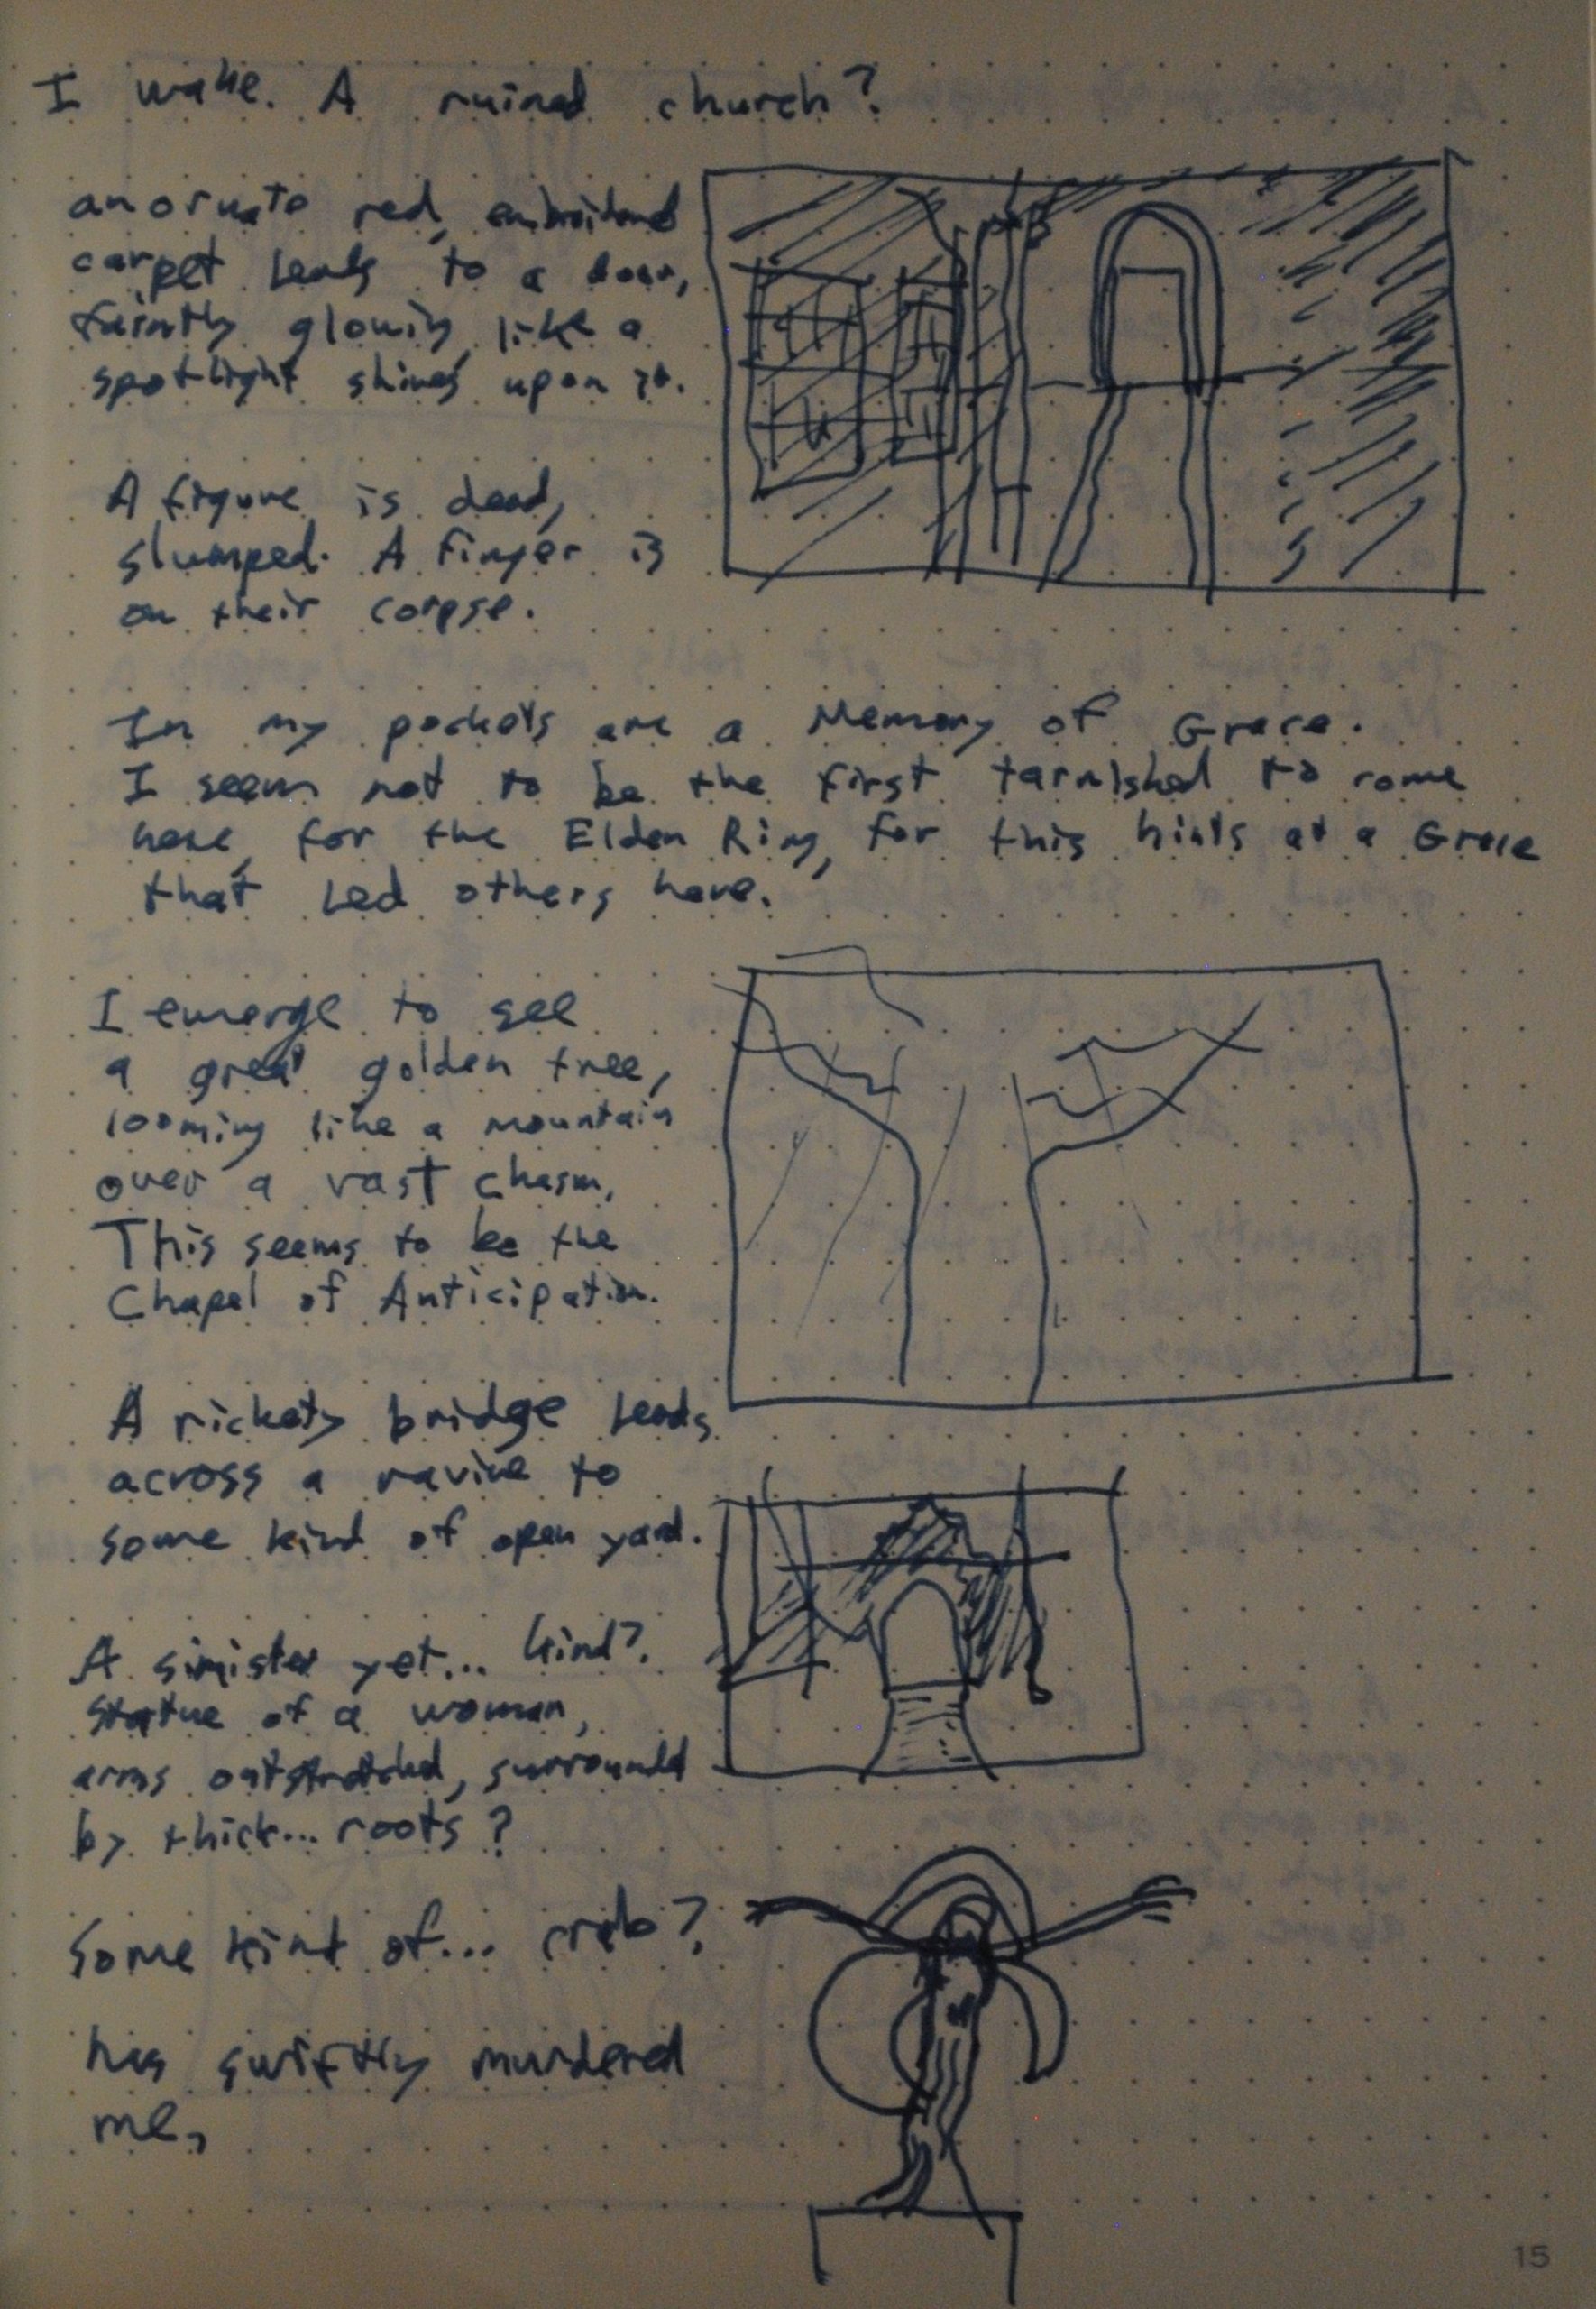 I wake. A ruined church?
an ornate red, embroidered
carpet leads to a door,
faintly glowing, like a
spotlight shines upon it.
A figure is dead,
slumped. A finger is
on their corpse.
In my pockets are a Memory of Grace.
I seem not to be the first tarnished to come
here, for the Elden Ring, for this hints at a Grace
that led others here.
I emerge to see
a great golden tree,
looming like a mountain
over a vast chasm,
This seems to be the
Chapel of Anticipation.
A rickety bridge leads
across a ravine to
some kind of open yard.
A sinister yet... kind?
statue of a woman,
arms outstretched, surrounded
by thick... roots?
Some kind of... crab?
has swiftly murdered
me,
15